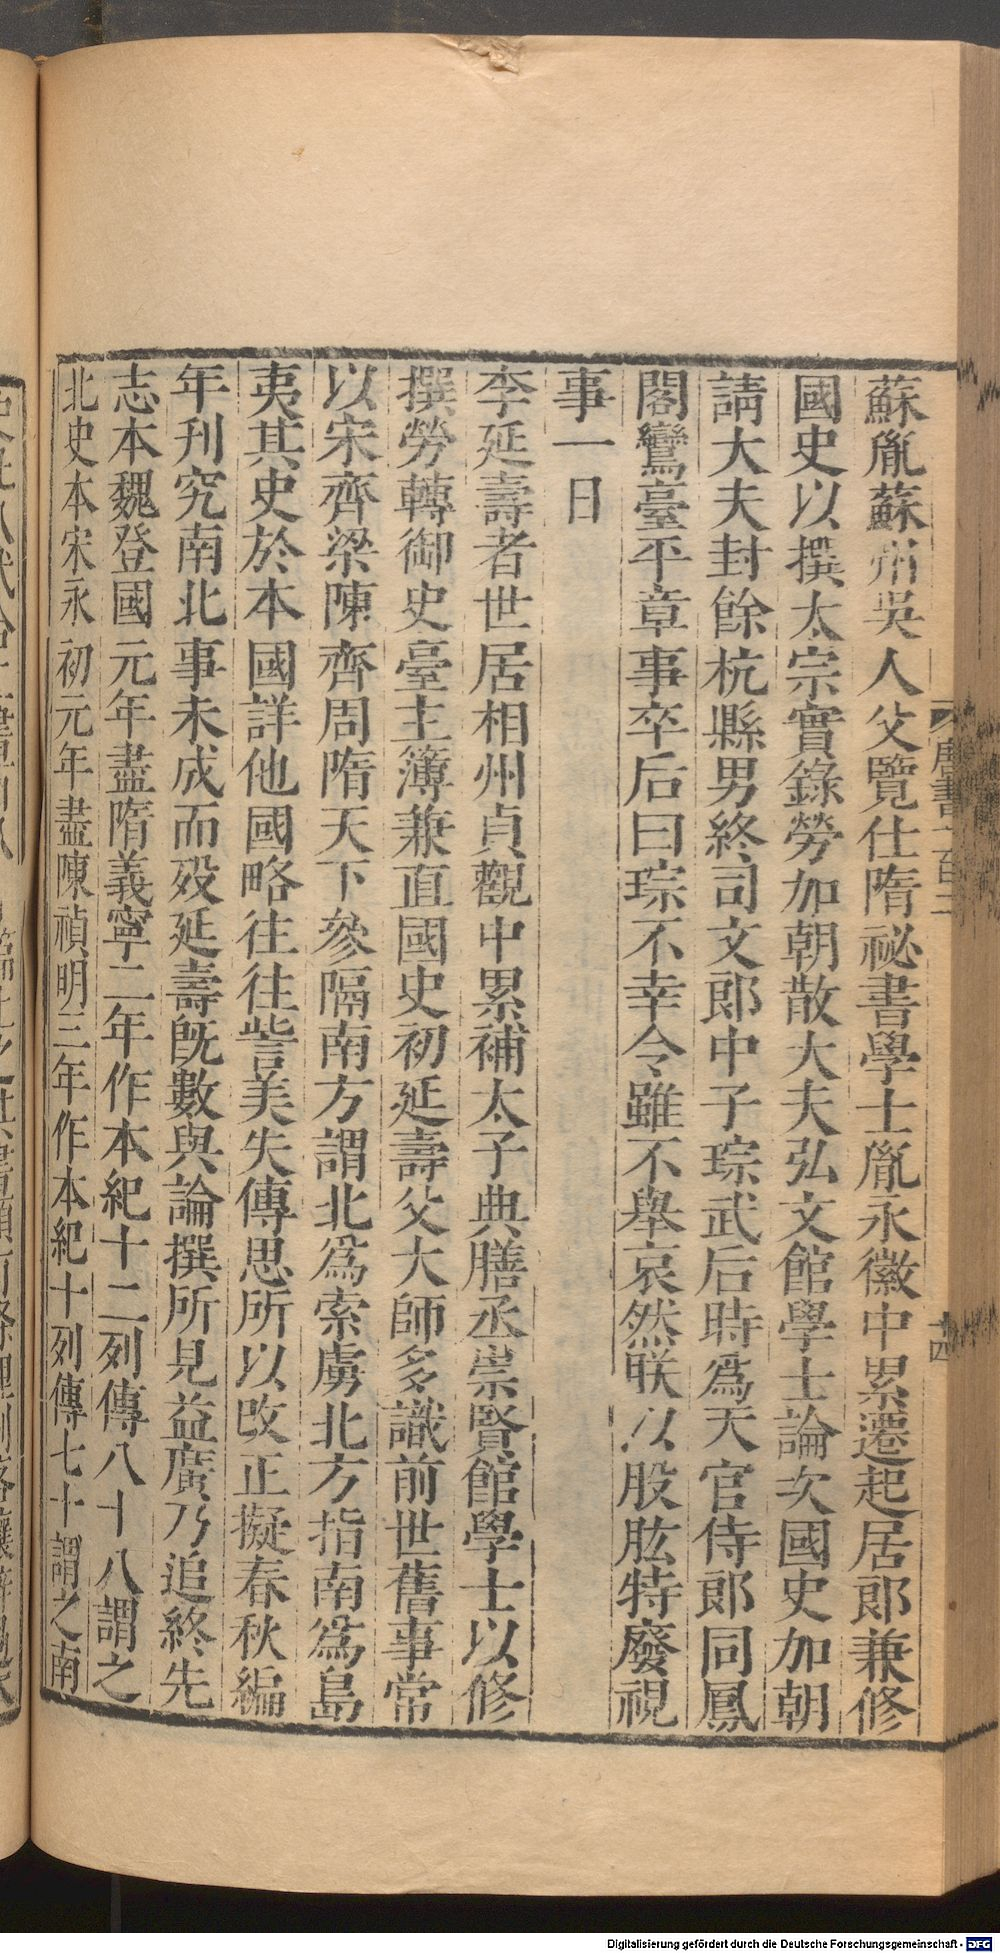 蘇胤蘇州吳人父覽仕隋祕書學士胤永徽中累遷起居郎兼修
國史以撰太宗實錄勞加朝散大夫弘文館學士論次國史加朝
請大夫封餘杭縣男終司文郎中子琮武后時爲天官侍郎同鳳
閣鸞臺平章事卒后曰琮不幸令雖不舉哀然朕以股肱特廢視
事一日
李延壽者世居相州貞觀中累補太子典膳丞崇賢館學士以修
撰勞轉御史臺主簿兼直國史初延壽父大師多識前世舊事常
以宋齊梁陳齊周隋天下參隔南方謂北爲索虜北方指南爲島
夷其史於本國詳他國略往往訾美失傳思所以改正擬春秋編
年刊究南北事未成而歿延壽旣數與論撰所見益廣乃追終先
志本魏登國元年盡隋義寧二年作本紀十二列傳八十八謂之
北史本宋永初元年盡陳禎明三年作本紀十列傳七十謂之南
唐書一百二
十四
Digitalisierung gefördert durch die Deutsche Forschungsgemeinschaft - DFG